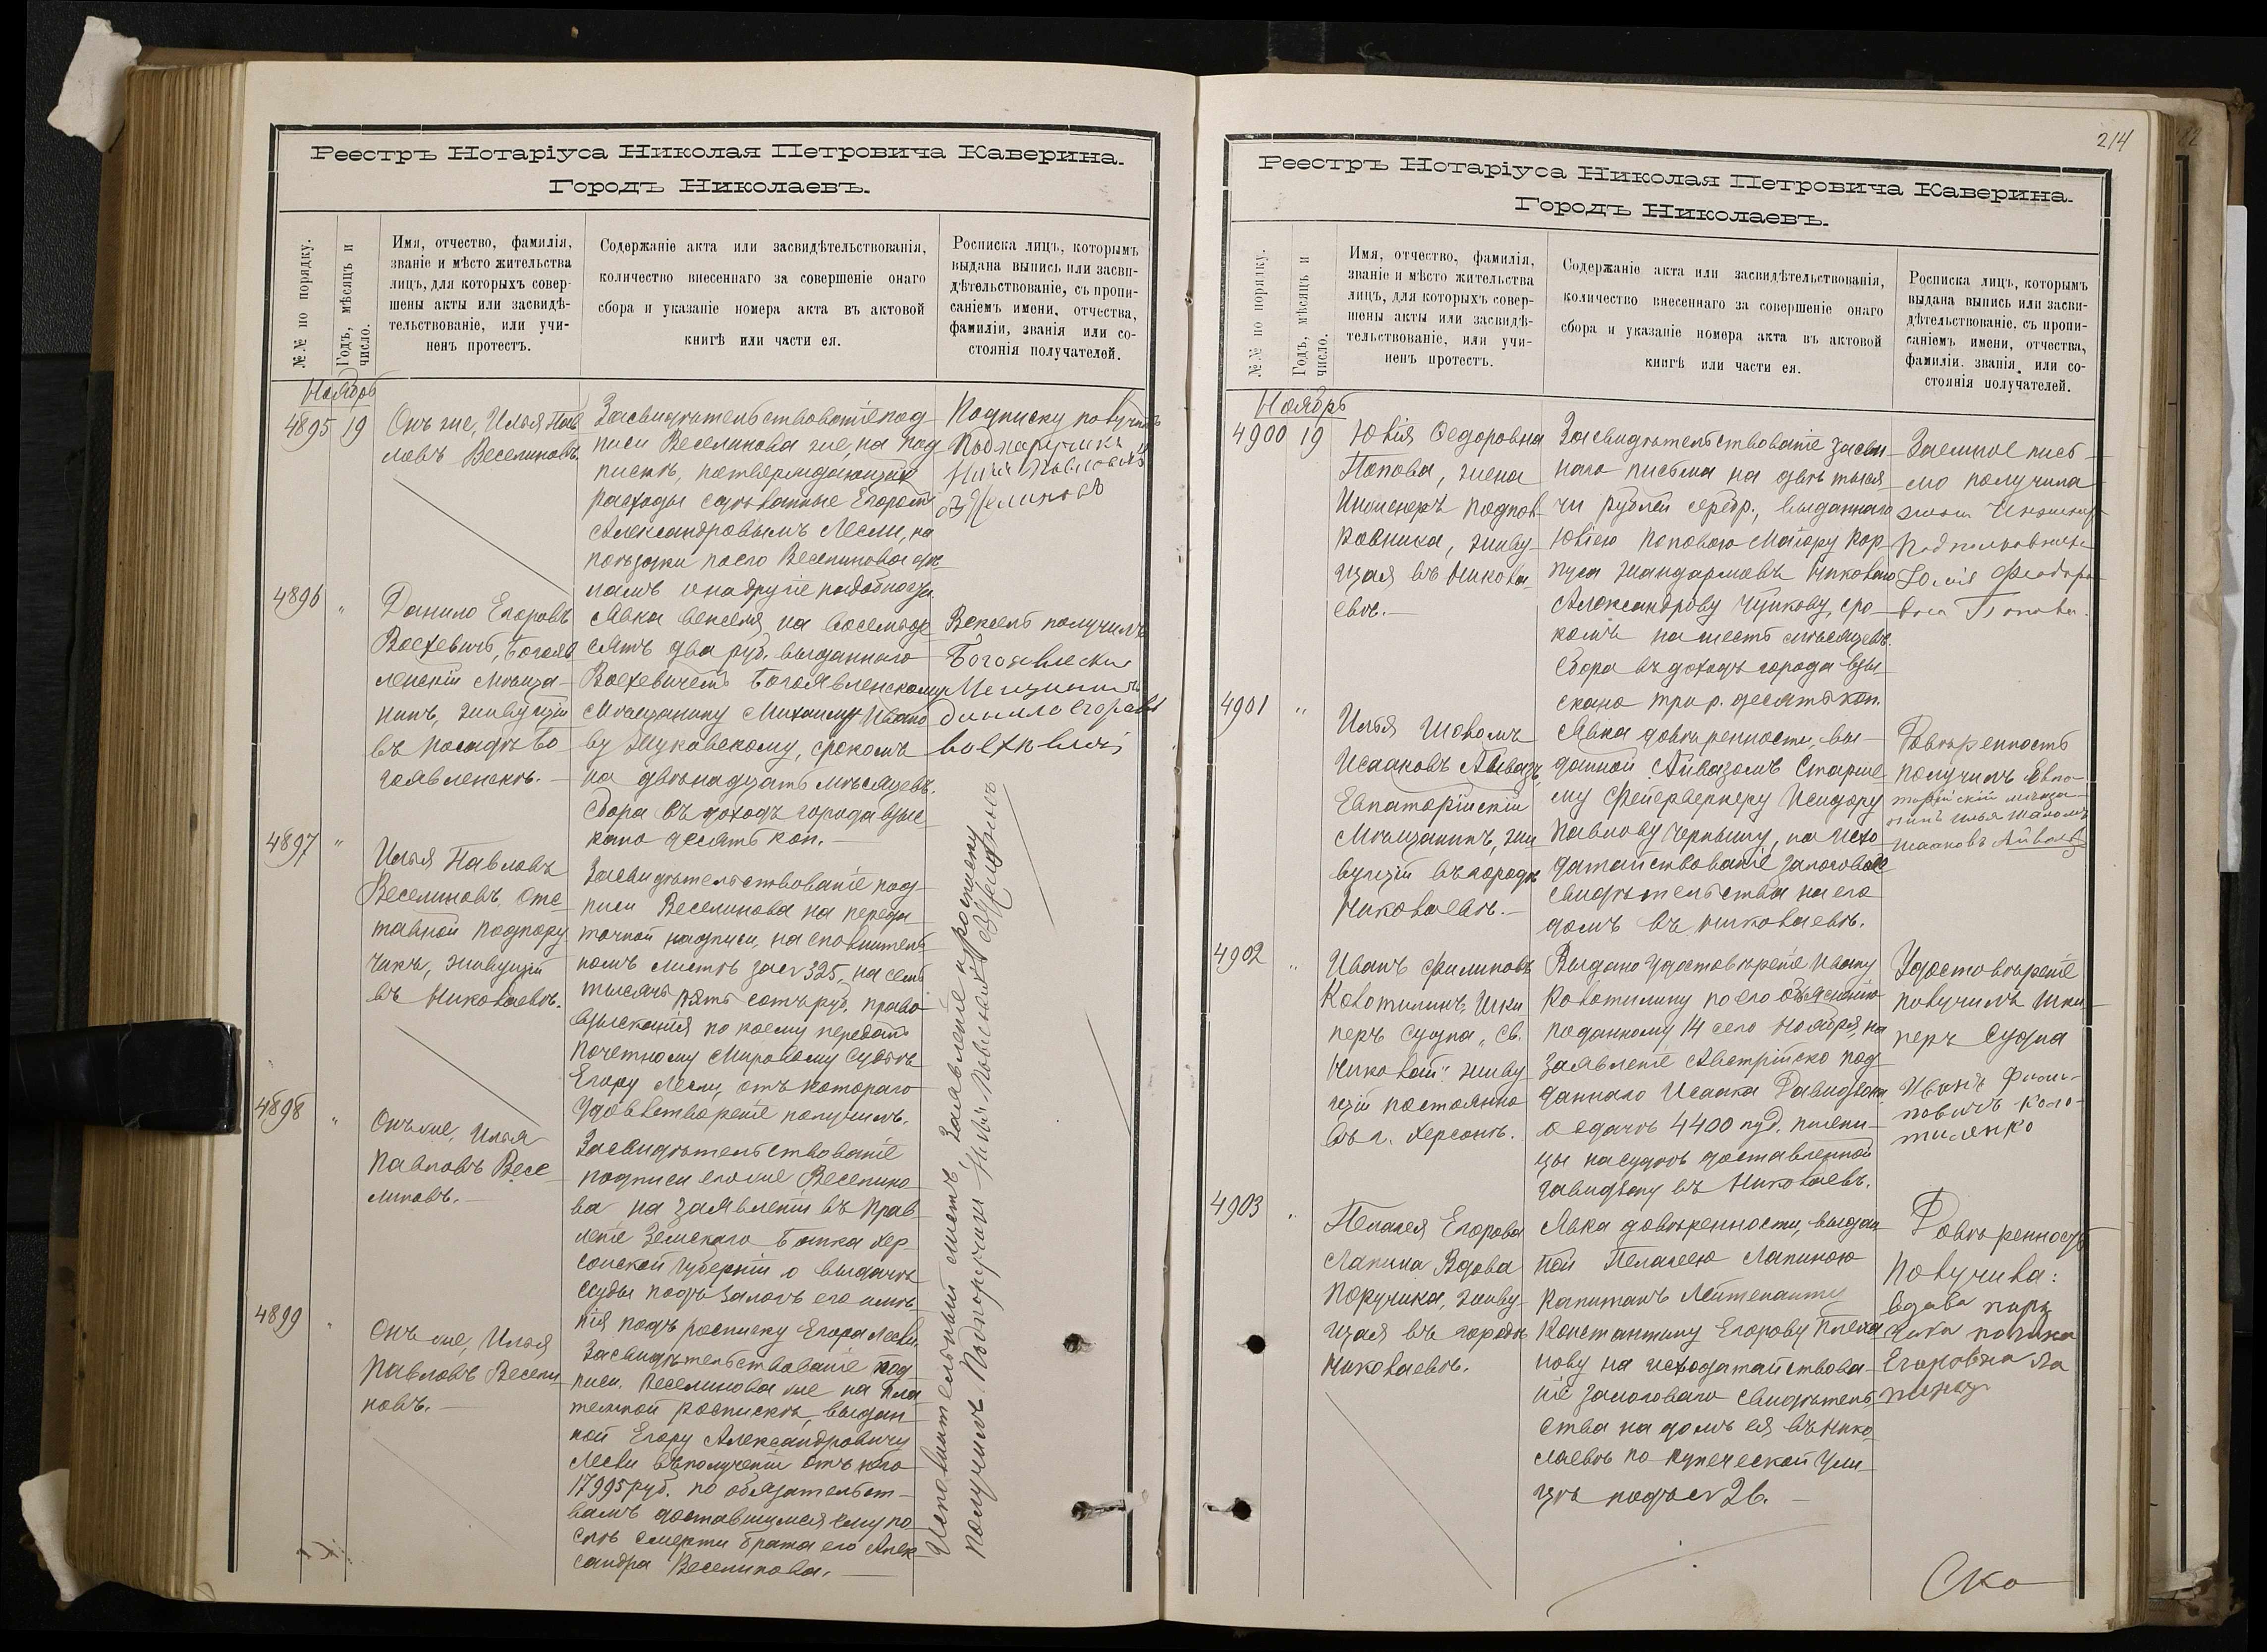 Реестръ Нотаріуса Николая Петровича Каверина.
Городъ Николаевъ.
№№ по порядку.
Годъ, мѣсяцъ и
число.
Имя, отчество, фамилія,
званіе и мѣсто жительства
лицъ, для которыхъ совер-
шены акты или засвидѣ-
тельствованіе, или учи-
ненъ протестъ.
Содержаніе акта или засвидѣтельствованія,
количество внесеннаго за совершеніе онаго
сбора и указаніе номера акта въ актовой
книгѣ или части ея.
Росписка лицъ, которымъ
выдана выпись или засви-
дѣтельствованіе, съ пропи-
саніемъ имени, отчества,
фамиліи, званія или со-
стоянія получателей.
Ноябрь
4895 19
Онъ же, Илья Пав
ловъ Веселиновъ.
Засвидѣтельствованіе под
писи Веселинова же, на под
пискѣ, потверждающей
расходы сдѣланные Егоромъ
Александровымъ Лесли, на
поѣздки по
ламъ и на другіе подобные
Подписку получилъ
Подпоручикъ
Илья Павловичъ
Веселиновъ
4896 "
Данило Егоровъ
Воехевичъ, Богояв
ленскій мѣща-
нинъ, живущій
въ посадѣ Бо
гоявленскѣ.
Явка векселя, на восемьде
сятъ два руб. выданнаго
Воехевичемъ Богоявленскому
мѣщанину Михаилу Ивано
ву Жуковскому, срокомъ
на двѣнадцать мѣсяцевъ.
Сбора въ доходъ города взыс
кано десять коп.
Вексель получилъ
Богоявлески
Мещининъ
данило Егоровъ
4897 "
Илья Павловъ
Веселиновъ, Отс
тавной подпору
чикъ, живущій
въ Николаевѣ.
Засвидѣтельствованіе под
писи Веселинова на переда
точной надписи, на сполнитель
номъ листѣ за № 325, на семь
тысячъ пять сотъ руб. право
взысканія по коему передалъ
Почетному Мировому Судьѣ
Егору Лесли, отъ котораго
удовлетвореніе получилъ.
4898 "
Онъ же, Илья
Павловъ Весе
линовъ.
Засвидѣтельствованіе
подписи его же Веселино
ва на заявленіи въ Прав
леніе Земскаго Банка Хер
сонской Губерніи о выдачѣ
ссуды подъ залогъ его имѣ
нія подъ росписку Егора Лесли.
4899 "
Онъ же, Илья
Павловъ Весели
новъ.
Засвидѣтельствованіе под
писи Веселинова же на пла
тежной роспискѣ, выдан
ной Егору Александровичу
Лесли въ полученіи отъ него
17995 руб. по обязательст
вамъ доставшимся ему по
слѣ смерти брата его Алек
сандра Веселинова.
Исполнительный листъ, заявленіе и росписку
получилъ Подпоручикъ Илья Павловичъ Веселиновъ
214
Реестръ Нотаріуса Николая Петровича Каверина.
Городъ Николаевъ.
№№ по порядку.
Годъ, мѣсяцъ и
число.
Имя, отчество, фамилія,
званіе и мѣсто жительства
лицъ, для которыхъ совер-
шены акты или засвидѣ-
тельствованіе, или учи-
ненъ протестъ.
Содержаніе акта или засвидѣтельствованія,
количество внесеннаго за совершеніе онаго
сбора и указаніе номера акта въ актовой
книгѣ или части ея.
Росписка лицъ, которымъ
выдана выпись или засви-
дѣтельствованіе, съ пропи-
саніемъ имени, отчества,
фамиліи, званія или со-
стоянія получателей.
Ноябрь
4900 19
Юлія Федоровна
Попова, жена
Инженеръ подпол
ковника, живу
щая въ Никола
евѣ.
Засвидѣтельствованіе заем
наго письма на двѣ тыся
чи рублей серебр., выданнаго
Юліею Поповою Маіору Кор
пуса Жандармовъ Николаю
Александрову Чуйкову, сро
комъ на шесть мѣсяцевъ.
Сбора въ доходъ города взы
скано три р. десять коп.
Заемное пись-
мо получила
жена Инженер
Подполковника
Юлія Феодоро
вна Попова.
4901 "
Илья Шоломъ
Исааковъ Айвазъ,
Евпаторійскій
мѣщанинъ, жи
вущій въ городѣ
Николаевѣ.
Явка довѣренности, вы-
данной Айвазомъ Старше
му Фейерверкеру Исидору
Павлову Чернышу, на исхо
датайствованіе залоговаго
свидѣтельства на его
домъ въ Николаевѣ.
Довѣренность
получилъ Евпа-
торійскій мѣща-
нинъ Илья Шаломъ
Исааковъ Айвазъ
4902 "
Иванъ Филиповъ
Колотилинъ, Шки
перъ судна „Св.
Николай" живу
щій постоянно
въ г. Херсонѣ.
Выдано удостовѣреніе Ивану
Колотилину по его объясненію
поданному 14 сего Ноября, на
заявленіе Австрійско под
даннаго Исаака Давидзона
о сдачѣ 4400 пуд. пшени
цы на суднѣ доставленной
Давидзону въ Николаевъ.
Удостовѣреніе
получилъ шки-
перъ судна
Иванъ Фили-
повичъ Коло-
тиленко
4903 "
Пелагея Егорова
Лапина Вдова
Поручика, живу
щая въ городѣ
Николаевѣ.
Явка довѣренности, выдан
ной Пелагеею Лапиною
Капитанъ Лейтенанту
Константину Егорову Плеха
нову на исходатайствова-
ніе залоговаго свидѣтель
ства на домъ ея въ Нико
лаевѣ по Купеческой Ули
цѣ подъ № 26.
Довѣренность
Получила:
вдава пору
чика
Егоровна Ла
пина
Ско